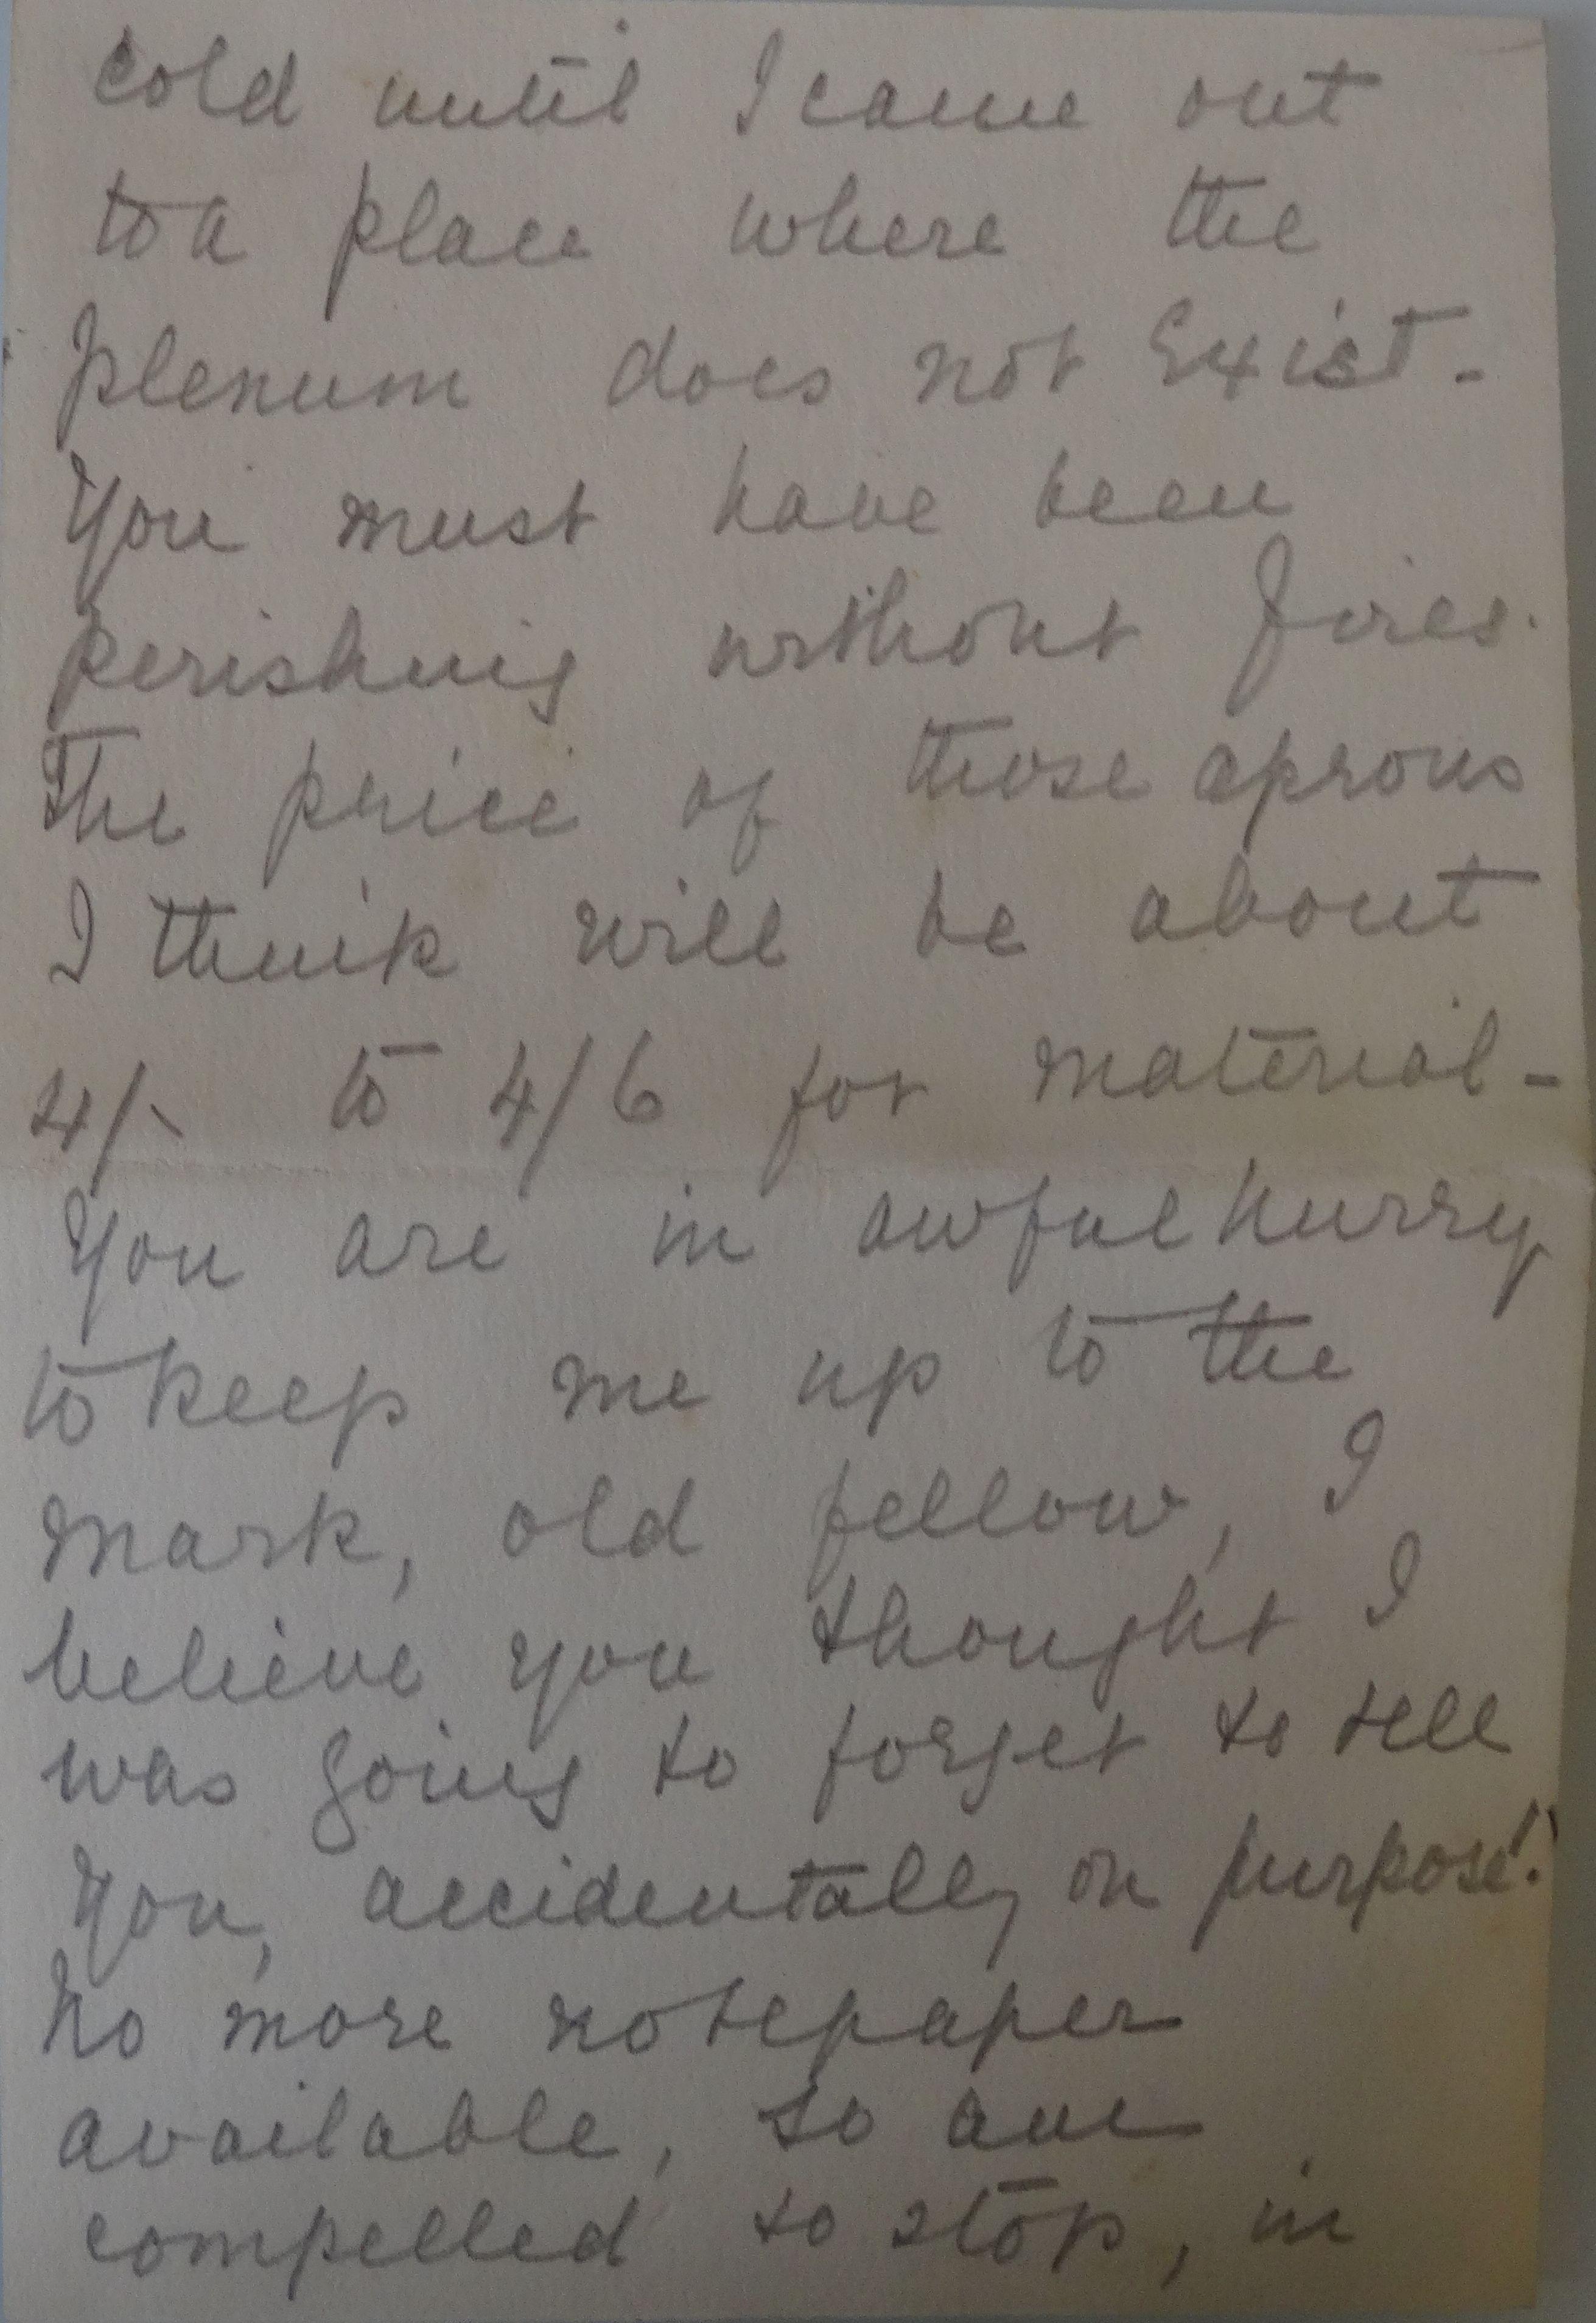 cold until I came out
to a place where the
plenum does not Exist -
You must have been
perishing without fires.
The price of those aprons
I think will be about
4/- to 4/6 for material -
You are in awful hurry
to keep me up to the
mark, old fellow, I
believe you thought I
was going to forget to tell
you, accidentally on purpose!
No more notepaper
available, so am
compelled to stop, in